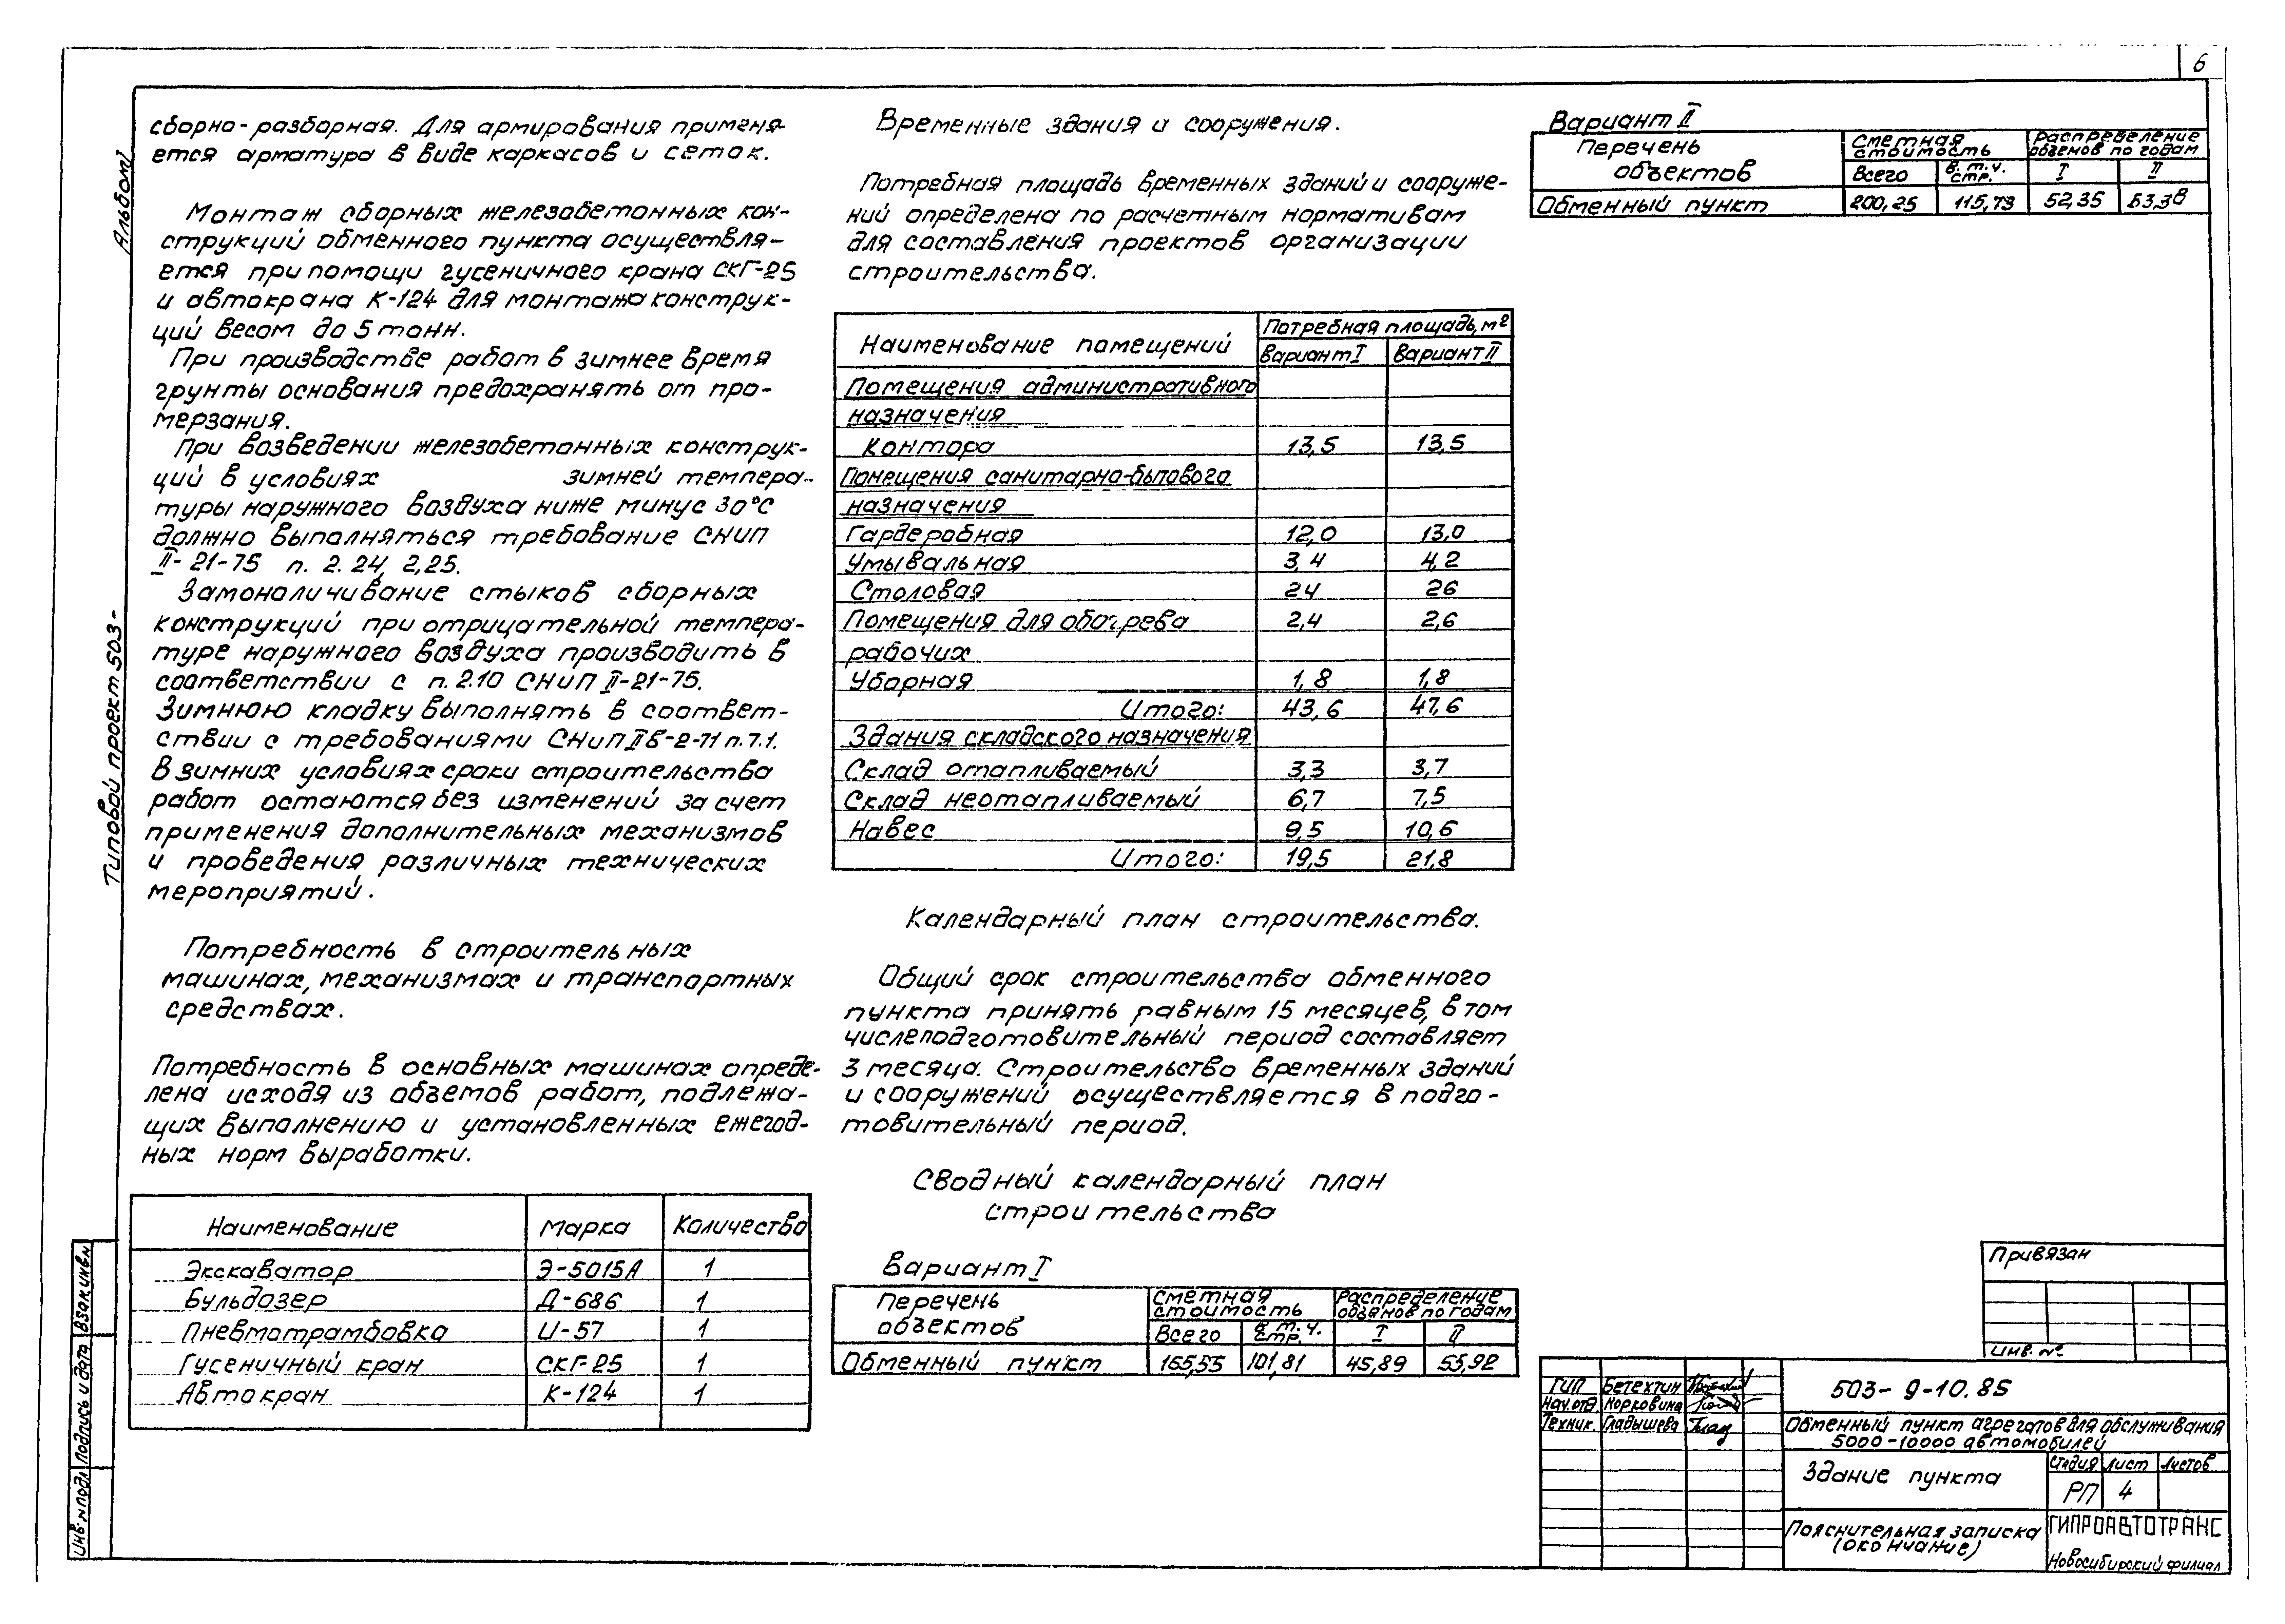 6
Альбом I
Типовой проект 503-
сборно-разборная. Для армирования применя-
ется арматура в виде каркасов и сеток.
Монтаж сборных железобетонных кон-
струкций обменного пункта осуществля-
ется при помощи гусеничного крана СКГ-25
и автокрана К-124 для монтажа конструк-
ций весом до 5 тонн.
При производстве работ в зимнее время
грунты основания предохранять от про-
мерзания.
При возведении железобетонных конструк-
ций в условиях зимней темпера-
туры наружного воздуха ниже минус 30°С
должно выполняться требование СНиП
II-21-75 п. 2.24, 2,25.
Замоналичивание стыков сборных
конструкций при отрицательной темпера-
туре наружного воздуха производить в
соответствии с п. 2.10 СНиП II-21-75.
Зимнюю кладку выполнять в соответ-
ствии с требованиями СНиП II В-2-71 п. 7.1.
В зимних условиях сроки строительства
работ остаются без изменений за счет
применения дополнительных механизмов
и проведения различных технических
мероприятий.
Потребность в строительных
машинах, механизмах и транспортных
средствах.
Потребность в основных машинах опреде-
лена исходя из объемов работ, подлежа-
щих выполнению и установленных ежегод-
ных норм выработки.
Наименование Марка Количество
Экскаватор Э-5015А 1
Бульдозер Д-686 1
Пневмотрамбовка И-57 1
Гусеничный кран СКГ-25 1
Автокран К-124 1
Временные здания и сооружения.
Потребная площадь временных зданий и сооруже-
ний определена по расчетным нормативам
для составления проектов организации
строительства.
Наименование помещений Потребная площадь, м2
Вариант I Вариант II
Помещения административного
назначения
Контора 13,5 13,5
Помещения санитарно-бытового
назначения
Гардеробная 12,0 13,0
Умывальная 3,4 4,2
Столовая 24 26
Помещения для обогрева 2,4 2,6
рабочих
Уборная 1,8 1,8
Итого: 43,6 47,6
Здания складского назначения
Склад отапливаемый 3,3 3,7
Склад неотапливаемый 6,7 7,5
Навес 9,5 10,6
Итого: 19,5 21,8
Календарный план строительства.
Общий срок строительства обменного
пункта принять равным 15 месяцев, в том
числе подготовительный период составляет
3 месяца. Строительство временных зданий
и сооружений осуществляется в подго-
товительный период.
Сводный календарный план
строительства
Вариант I
Перечень объектов Сметная стоимость Распределение объемов по годам
Всего в т.ч. стр. I II
Обменный пункт 165,55 101,81 45,89 55,92
Вариант II
Перечень объектов Сметная стоимость Распределение объемов по годам
Всего в т.ч. стр. I II
Обменный пункт 200,25 115,73 52,35 63,38
Привязан
Инв. №
ГИП Бетехтин
Нач.отд. Норковина
Техник. Гладышева
503-9-10.85
Обменный пункт агрегатов для обслуживания
5000-10000 автомобилей
Здание пункта
Стадия Лист Листов
РП 4
Пояснительная записка
(окончание)
ГИПРОАВТОТРАНС
Новосибирский филиал
Инв.№подл Подпись и дата Взам.инв.№